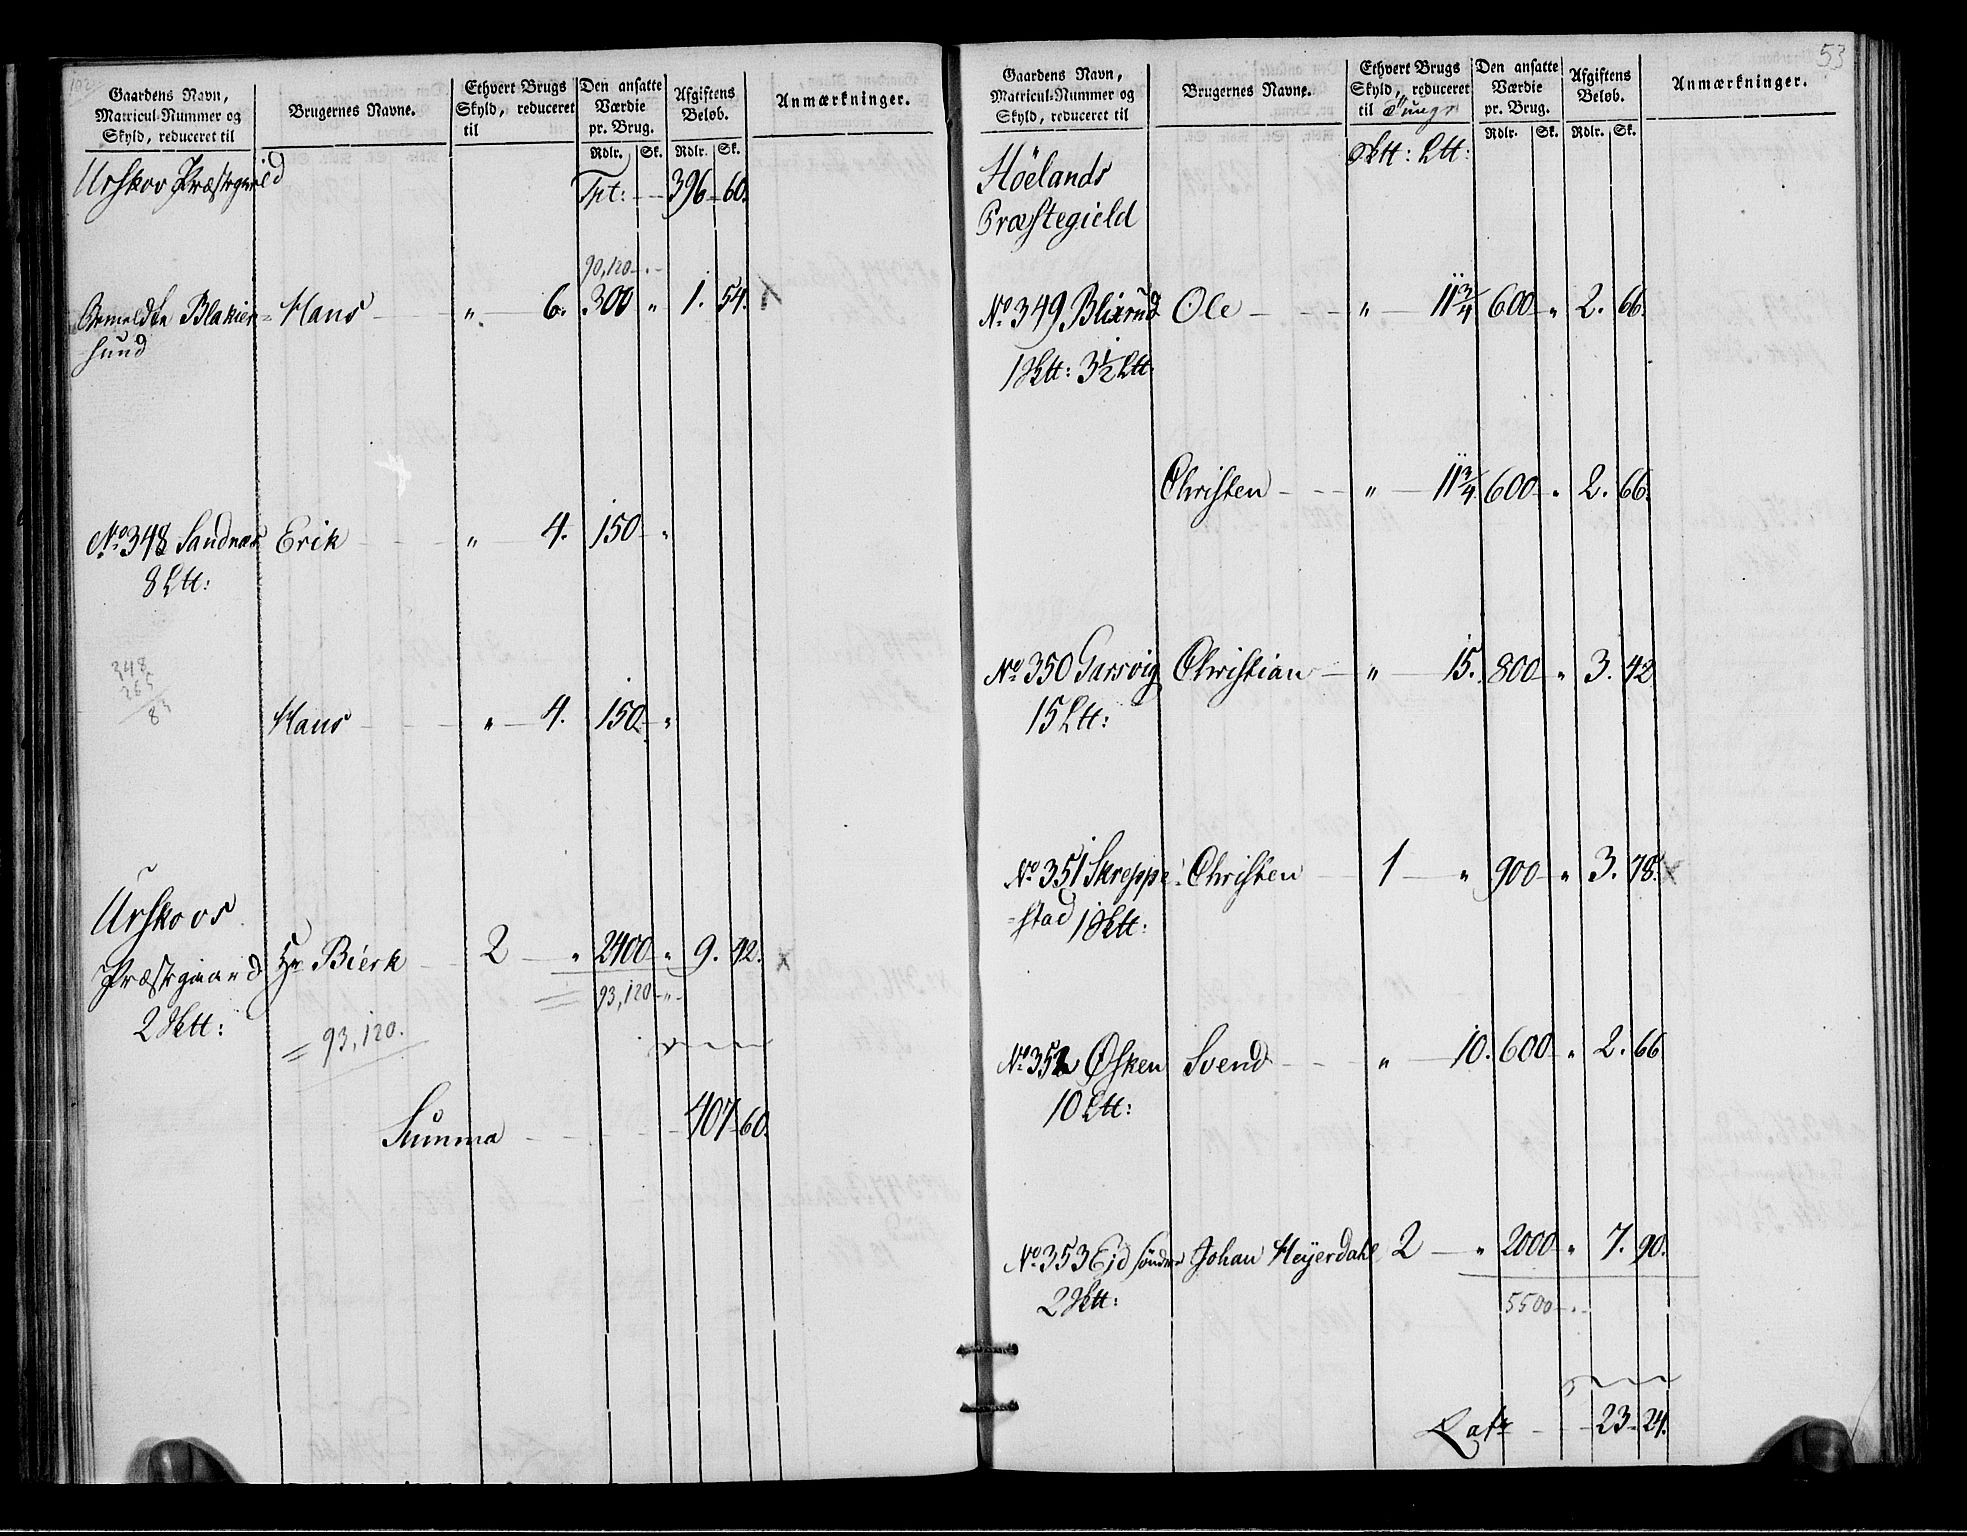 Gaardens Navn,
Matricul-Nummer og
Skyld, reduceret til
Brugernes Navne.
Ethvert Brugs
Skyld, reduceret
til
Den ansatte
Værdie
pr. Brug.
Rdlr. Sk.
Afgiftens
Beløb.
Rdlr. Sk.
Anmærkninger.
Urskov Præstegield
Tpt: 396 60.
90,120
Hans " 6. 300 " 1. 54. X
Blakier=
sund
No 348 Sandnæs Erik " 4. 150 "
8 Ltt:
348
265
83
Hans " 4. 150 "
Urskovs
Præstegaard Hr Bierk 2 " 2400 " 9. 42. X
2 Sktt:
93,120
= 93,120.
Summa 407 60.
53
Gaardens Navn,
Matricul-Nummer og
Skyld, reduceret til
Brugernes Navne.
Ethvert Brugs
Skyld, reduceret
til Tunge
Den ansatte
Værdie
pr. Brug.
Rdlr. Sk.
Afgiftens
Beløb.
Rdlr. Sk.
Anmærkninger.
Sktt: Ltt:
Höelands
Præstegield
No 349 Blixrud Ole " 11 3/4 600 " 2. 66.
1 Sktt: 3 1/2 Ltt:
Christen " 11 3/4 600 " 2. 66.
No 350 Garsvig Christian " 15. 800 " 3. 42
15 Ltt:
No 351 Skreppe= Christen 1 " 900 " 3. 78. X
=stad 1 Sktt:
No 352 Øsken Svend " 10. 600 " 2. 66
10 Ltt:
No 353 Eid söndre Johan Heyerdahl 2 " 2000 " 7. 90.
2 Sktt:
5500
Lats 23 24.